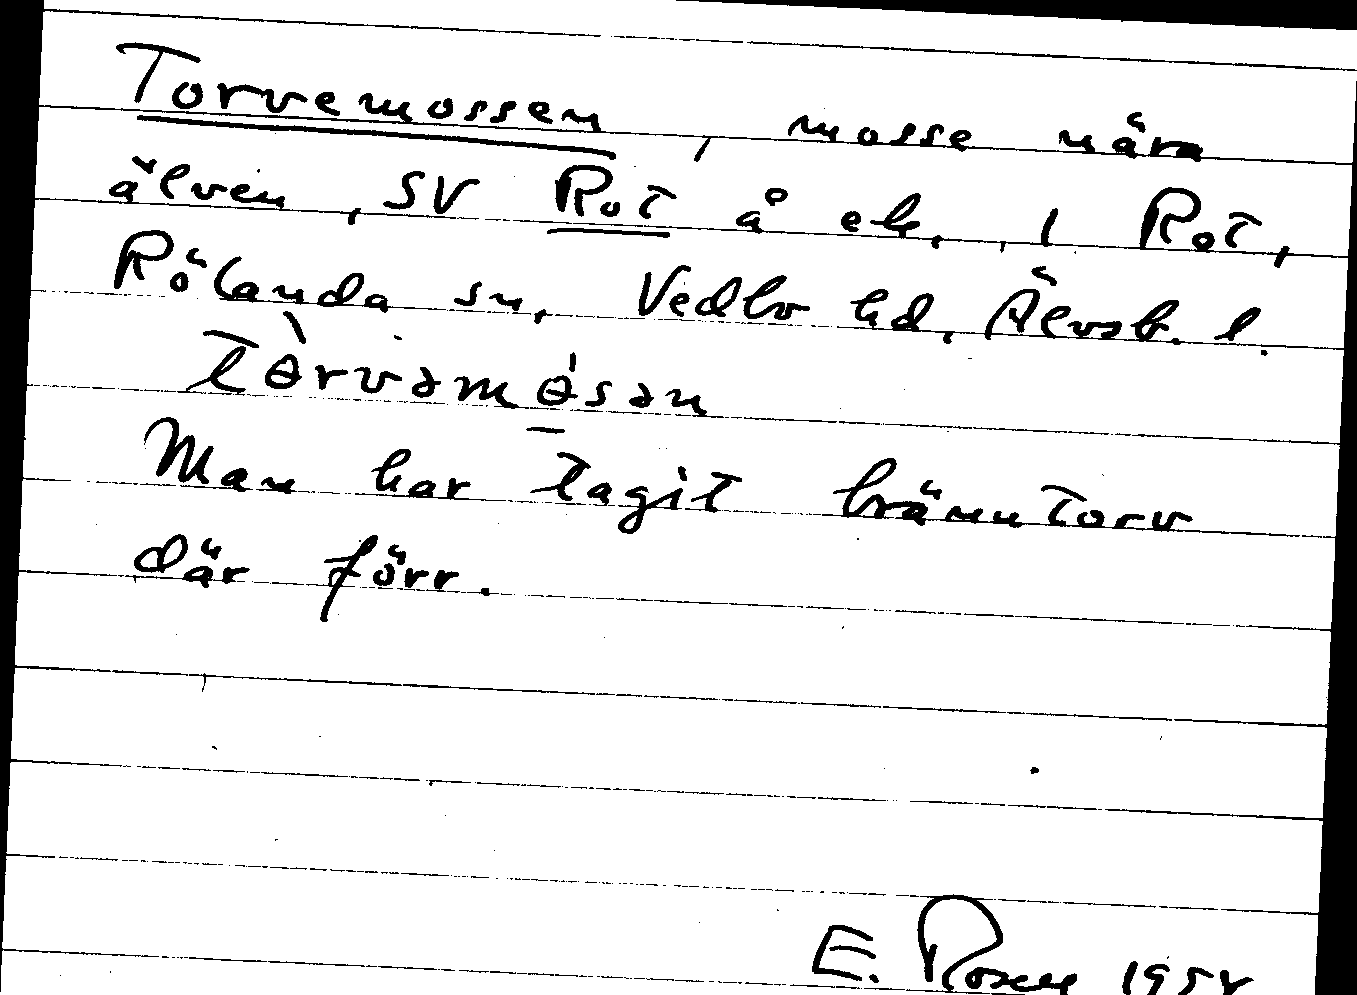 Torvemossen, mosse nära
älven, SV Rot å ek., 1 Rot,
Rölanda sn, Vedbo hd, Älvsb. l.
tɵ̀rvəmɵ́sən
Man har tagit bränntorv
där förr.
E. Rosen 195